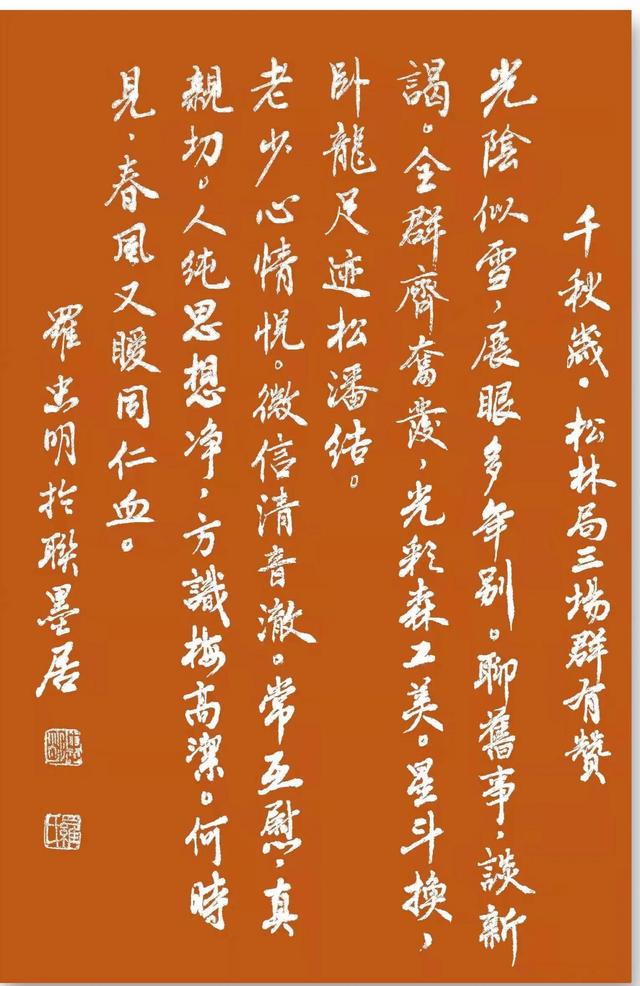 千秋歲·松林局三場群有贊
光陰似雪,展眼多年别。聊舊事,談新
謁。全群齊奮發,光彩森工美。星斗換,
卧龍足迹松潘結。
老少心情悦。微信清音澈。常互慰,真
親切。人纯思想净,方識梅高潔。何時
見,春風又暖同仁血。
羅忠明於聯墨居